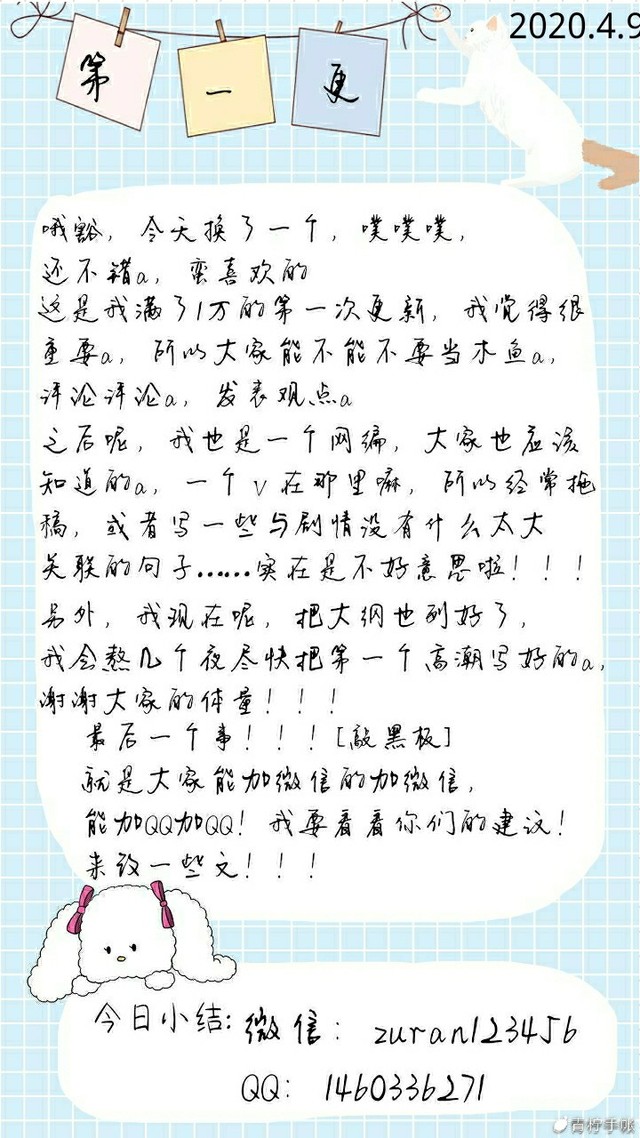 2020.4.9
第一更
哦豁，今天换了一个，噗噗噗，
还不错a，蛮喜欢的
这是我满了1万的第一次更新，我觉得很
重要a，所以大家能不能不要当木鱼a，
评论评论a，发表观点a
之后呢，我也是一个网编，大家也应该
知道的a，一个v在那里嘛，所以经常拖
稿，或者写一些与剧情没有什么太大
关联的句子……实在是不好意思啦！！！
另外，我现在呢，把大纲也列好了，
我会熬几个夜尽快把第一个高潮写好的a，
谢谢大家的体量！！！
最后一个事！！！[敲黑板]
就是大家能加微信的加微信，
能加QQ加QQ！我要看看你们的建议！
来改一些文！！！
今日小结：微信：zuran123456
QQ：1460336271
青柠手账